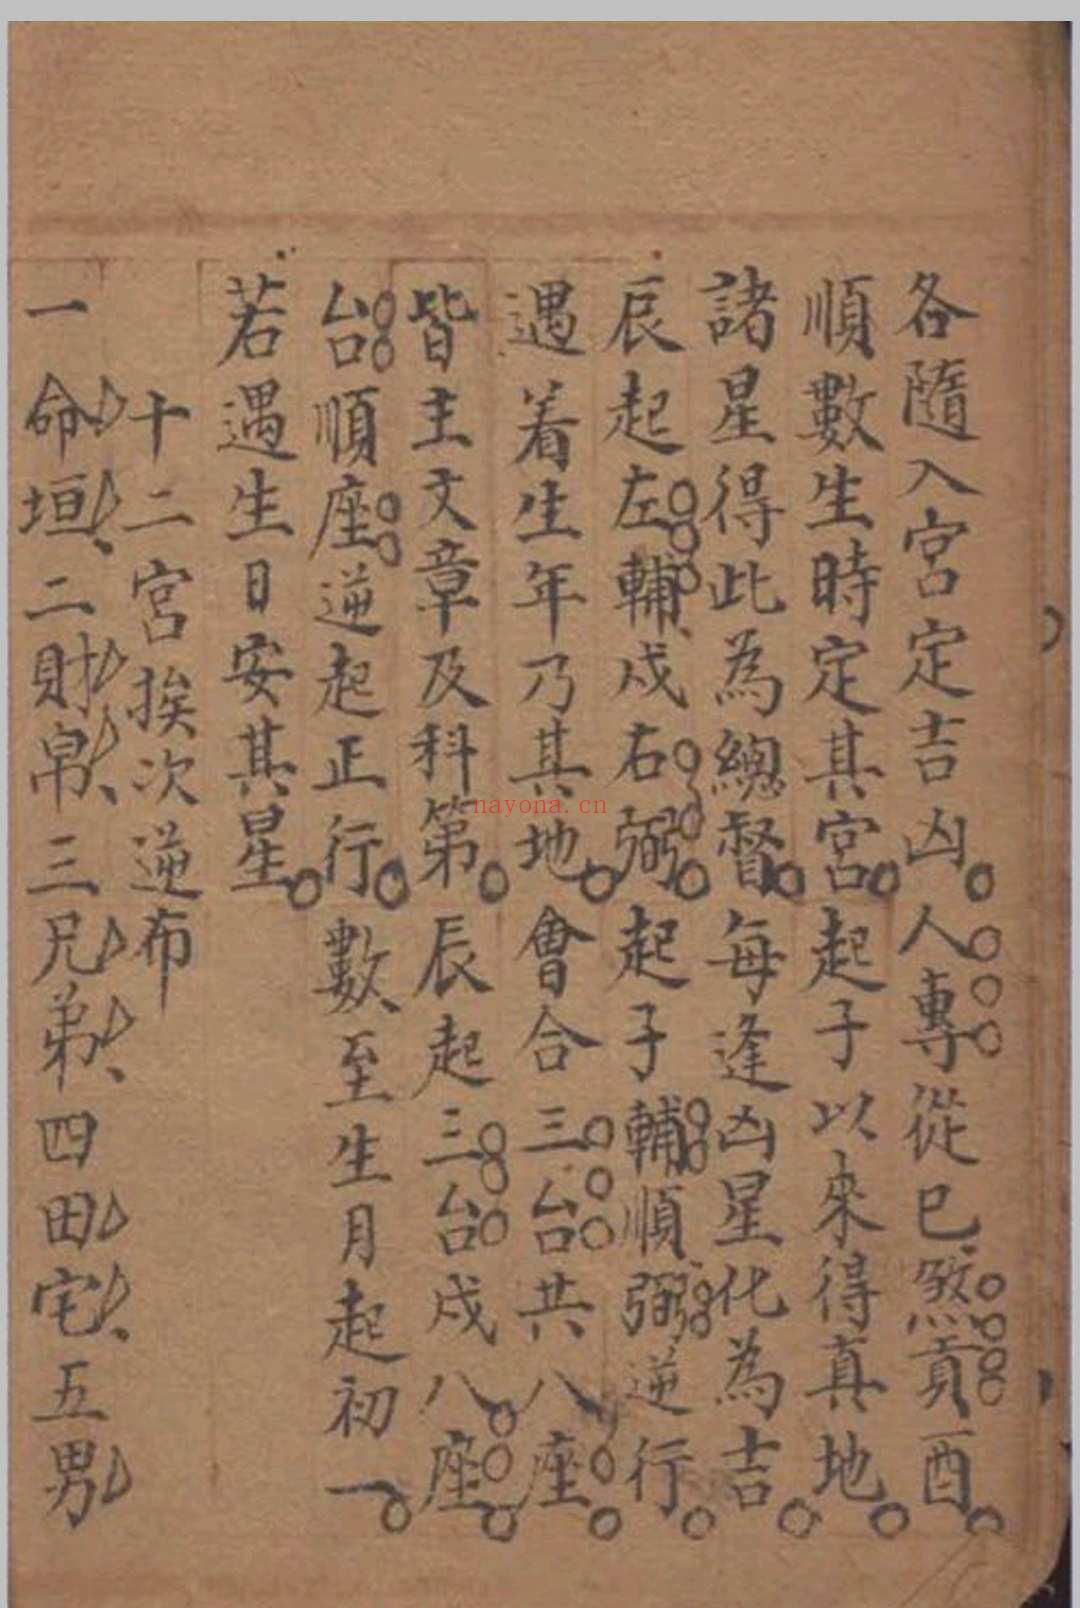 各隨入宮定吉凶人專從巳煞貢酉
順數生時定其宮起子以來得真地
諸星得此為總督每逢凶星化為吉
辰起左輔戌右弼起子輔順弼逆行
遇着生年乃其地會合三台共八座
皆主文章及科第辰起三台戌八座
台順座逆起正行數至生月起初一
若遇生日安其星
十二宮挨次逆布
一命垣二財帛三兄弟四田宅五男
nayona.cn